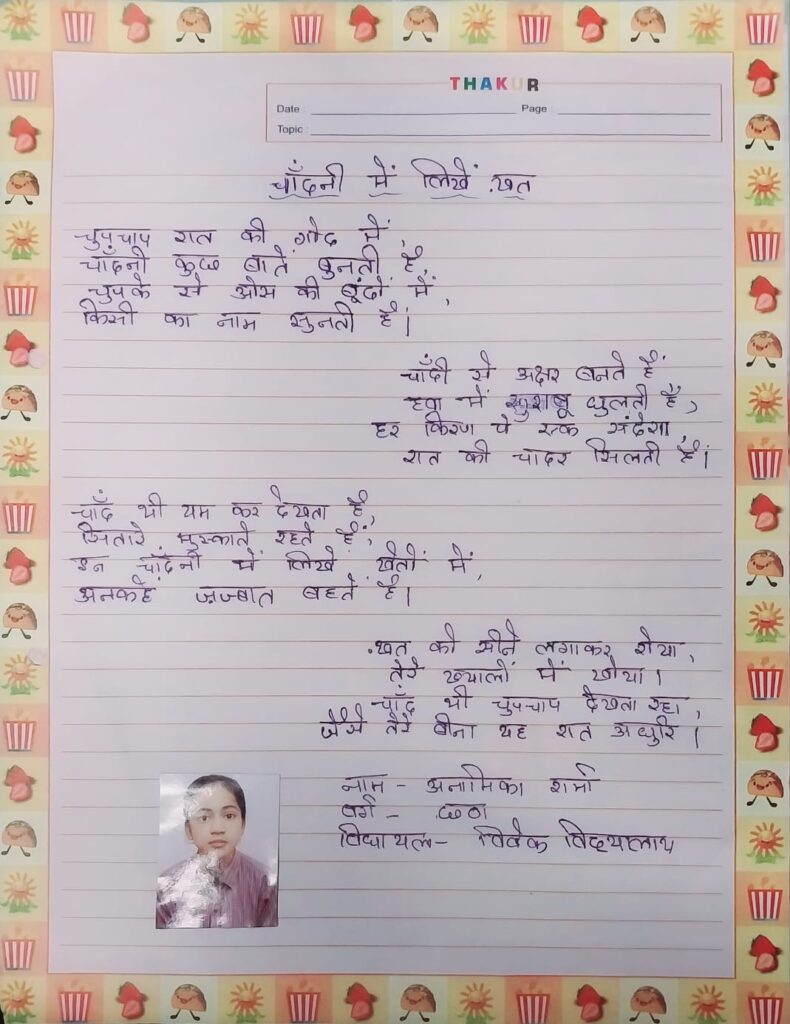 THAKUR
Date : Page :
Topic :
चाँदनी में लिखें ख़त
चुपचाप रात की गोद में,
चाँदनी कुछ बातें बुनती है,
चुपके से ओस की बूंदों में,
किसी का नाम सुनती है।
चाँदी से अक्षर बनते हैं
हवा में खुशबू घुलती है,
हर किरण पे एक संदेशा,
रात की चादर सिलती है।
चाँद भी थम कर देखता है,
सितारे मुस्काते रहते हैं,
इन चाँदनी में लिखे खतों में,
अनकहे जज्बात बहते है।
ख़त को सीने लगाकर रोया,
तेरे ख्यालों में खोया।
चाँद भी चुपचाप देखता रहा,
जैसे तेरे बीना यह रात अधुरि।
नाम - अनामिका शर्मा
वर्ग - छठा
विद्यायल - विवेक विद्यालाय